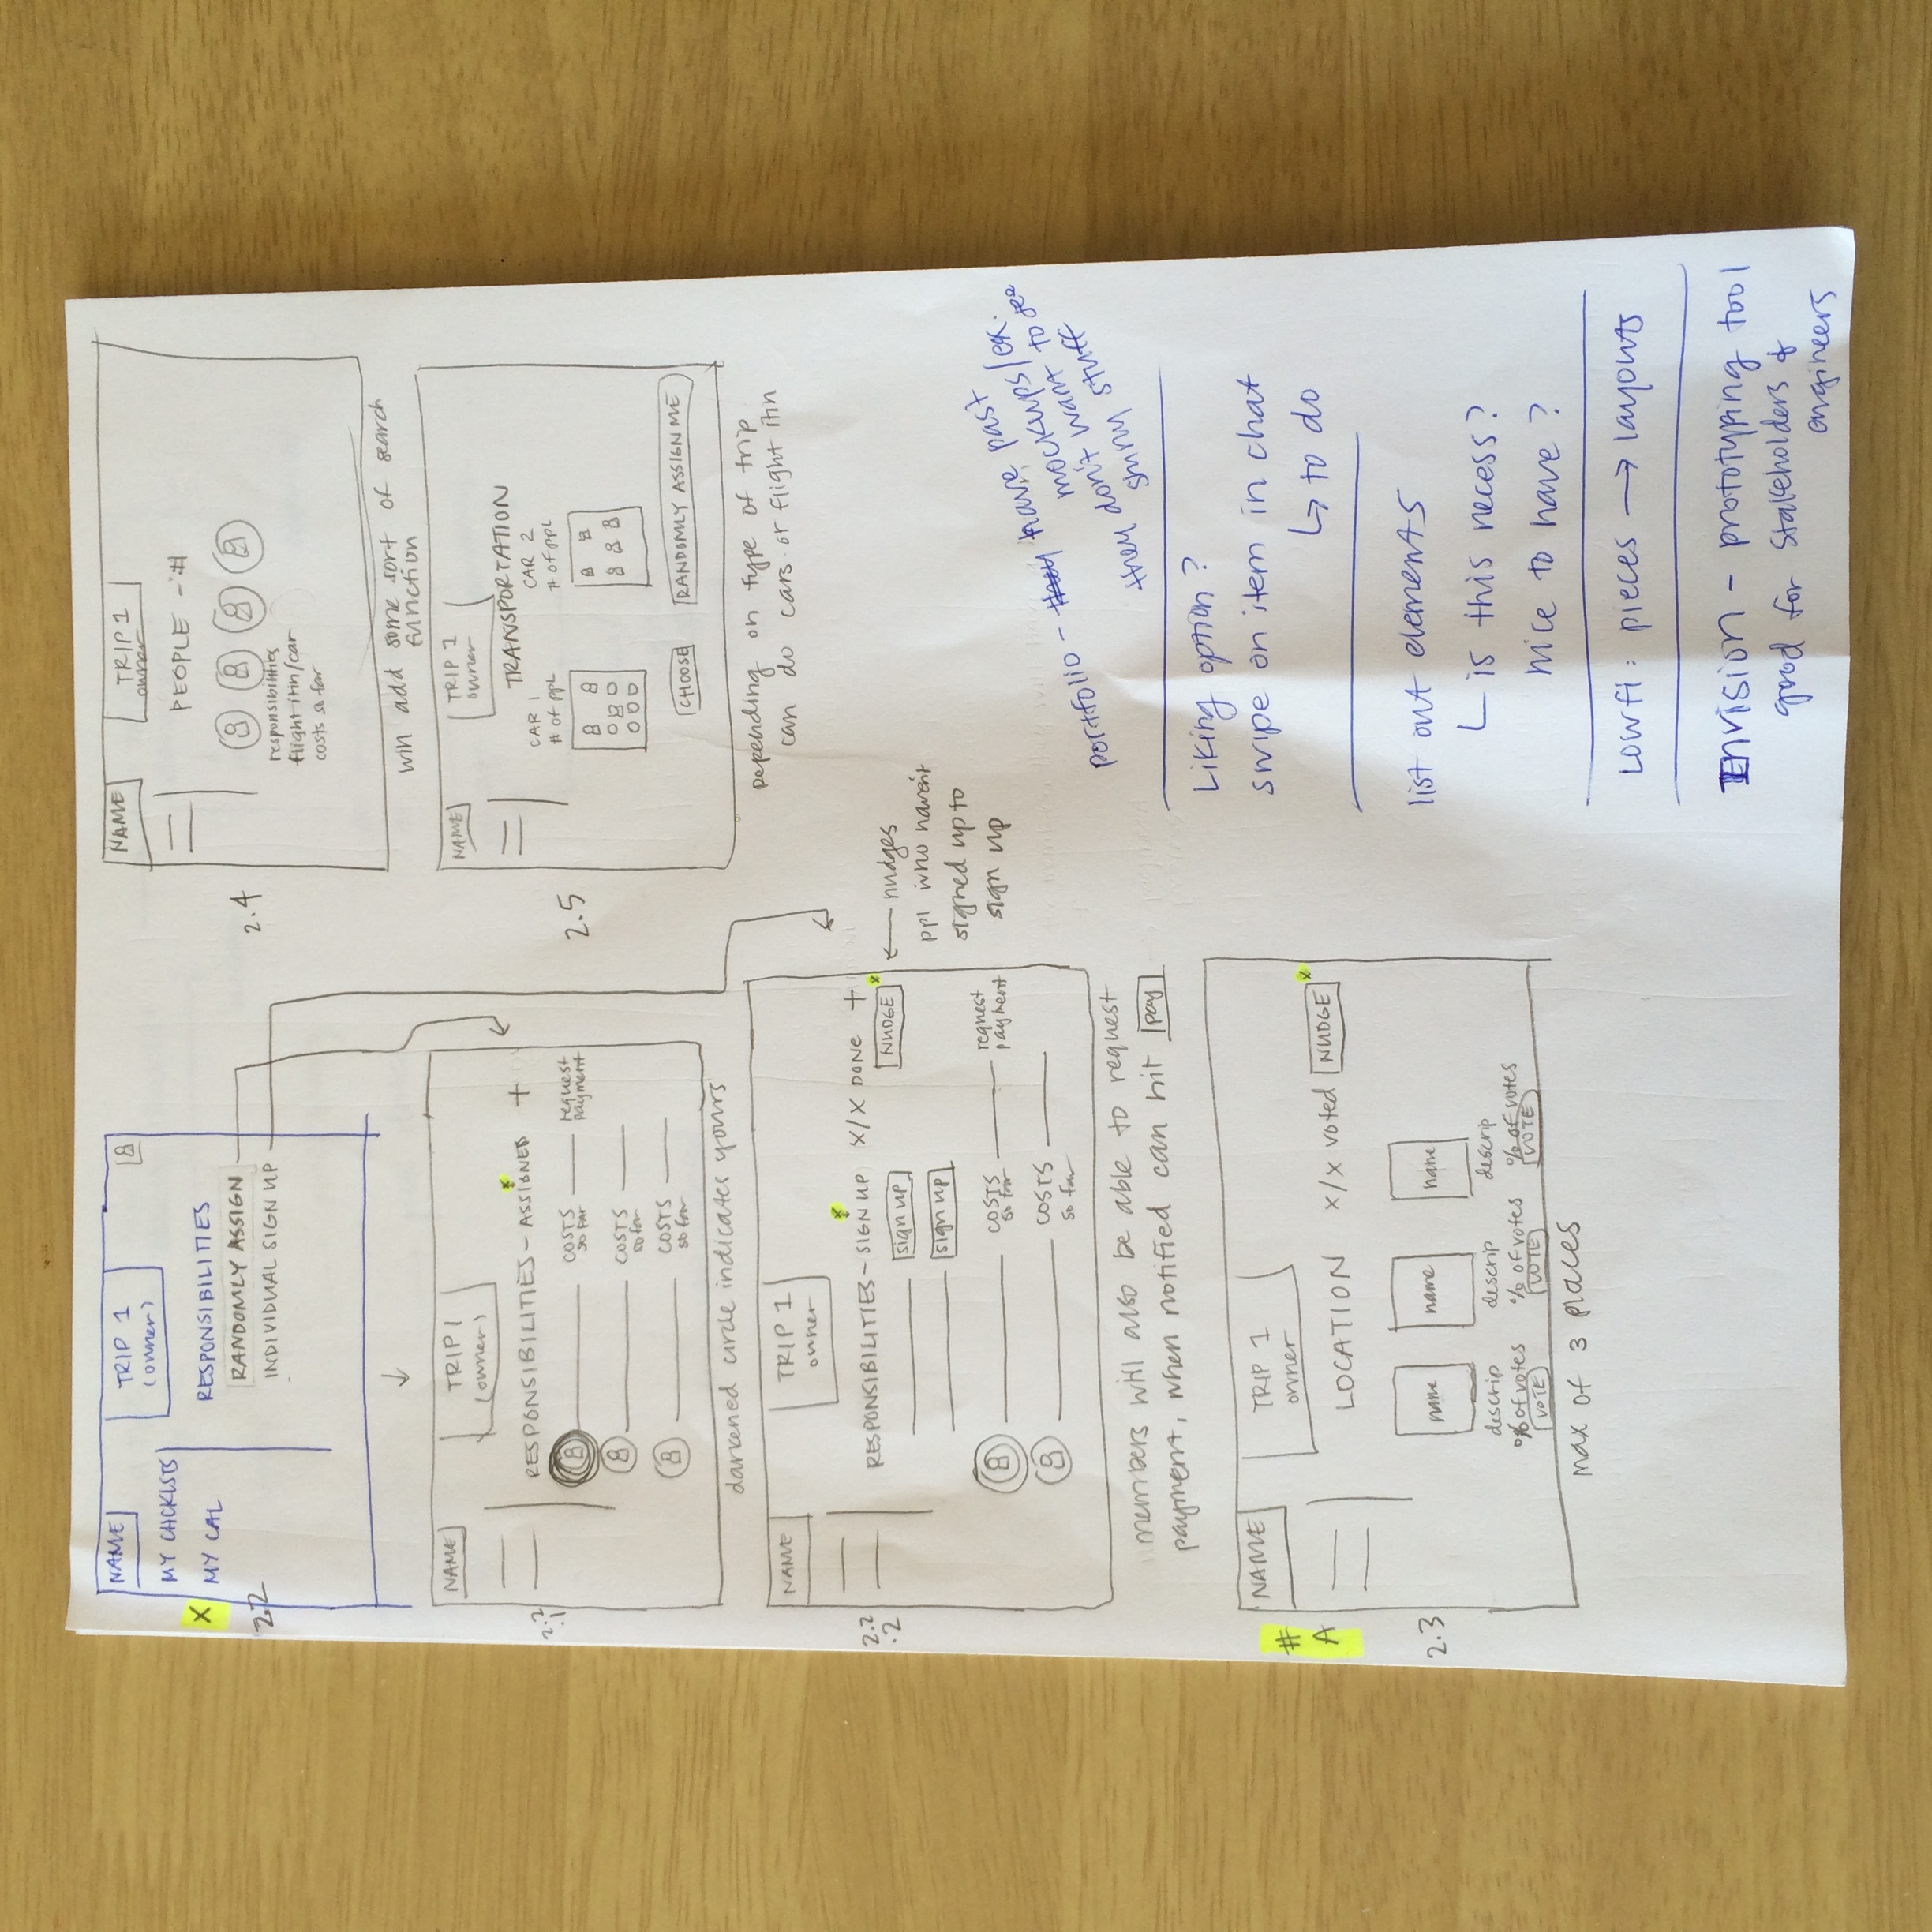 NAME
TRIP 1
(owner)
MY CHCKLSTS
X
MY CAL
2.2
RESPONSIBILITIES
RANDOMLY ASSIGN
INDIVIDUAL SIGN UP
NAME
TRIP 1
(owner)
x
RESPONSIBILITIES - ASSIGNED +
2.2
.1
COSTS
so far
request
payment
COSTS
so far
COSTS
so far
darkened circle indicates yours
NAME
TRIP 1
owner
x
RESPONSIBILITIES - SIGN UP x/x DONE +
2.2
.2
NUDGE
x
sign up
sign up
← nudges
ppl who haven't
signed up to
sign up
COSTS
so far
request
payment
COSTS
so far
members will also be able to request
payment, when notified can hit pay
#
A
2.3
NAME
TRIP 1
owner
LOCATION x/x voted NUDGE
x
name name name
descrip descrip descrip
% of votes % of votes % of votes
VOTE VOTE VOTE
max of 3 places
2.4
NAME
TRIP 1
owner
PEOPLE - #
responsibilities
flight itin/car
costs so far
will add some sort of search
function
2.5
NAME
TRIP 1
owner
TRANSPORTATION
CAR 1 CAR 2
# of ppl # of ppl
CHOOSE RANDOMLY ASSIGN ME
Depending on type of trip
can do cars or flight itin
portfolio - they have past
mockups/ex.
they don't want to see
shiny stuff
Liking option?
swipe on item in chat
↳ to do
list out elements
└ is this necess?
nice to have?
Lowfi: pieces → layouts
Invision - prototyping tool
good for stakeholders &
engineers